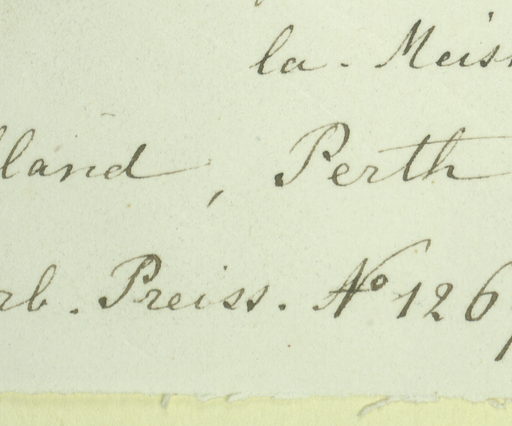 la. Meis
lland, Perth
rb. Preiss. No 126